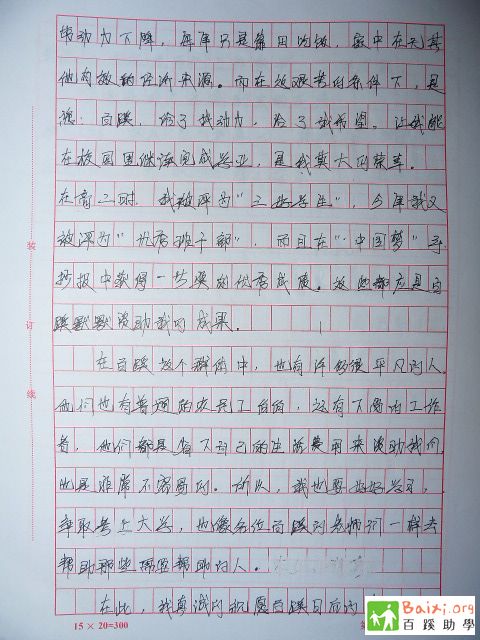 劳动力下降，每年只是够用吃饭，家中在无其
他的收的经济来源。而在这艰苦的条件下，是
德 百蹊，给了我动力，给了我希望。让我能
在校园里继续完成学业，是我莫大的荣幸。
在高二时，我被评为“三好学生”，今年我又
被评为“优秀班干部”，而且在“中国梦”手
抄报中获得一些奖的优秀成绩。这些都应是百
蹊默默资助我的成果。
在百蹊这个群体中，也有许多很平凡的人
他们也有普通的农民工伯伯，还有下岗的工作
者，他们都是省下自己的生活费用来资助我们
也是非常不容易的。所以，我也要好好学习，
争取考上大学，也像各位百蹊的老师们一样去
帮助那些需要帮助的人。
在此，我真诚的祝愿百蹊日后的
装
订
线
15×20=300
第
Baixi.org
百蹊助學